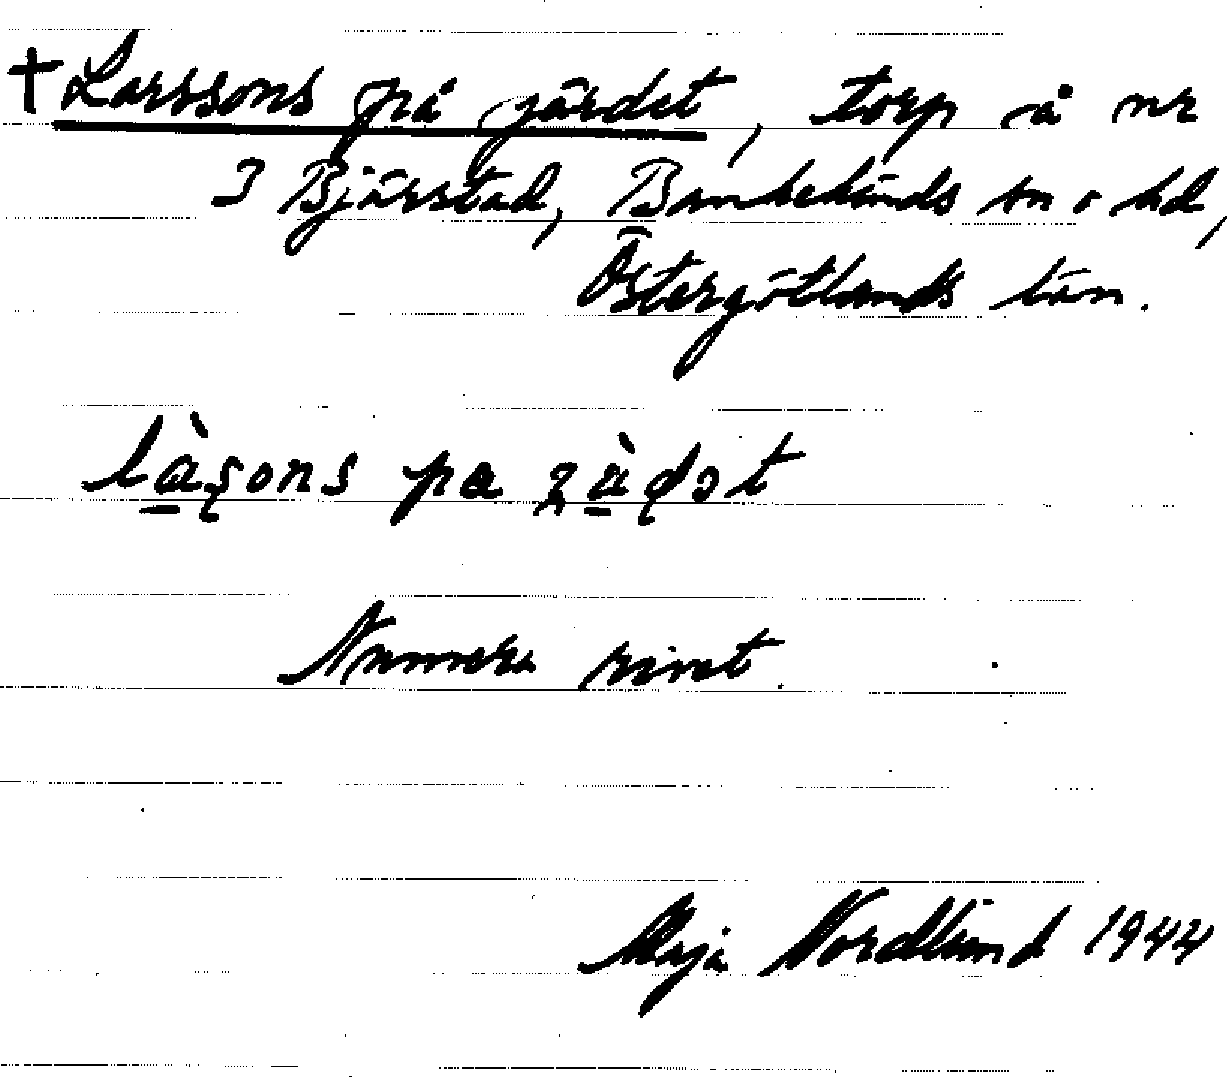 †Larssons på järdet, torp å nr
3 Bjärstad, Bankekinds sn o hd,
Östergötlands län.
pa
Numera rivet.
Maja Nordlind 1944